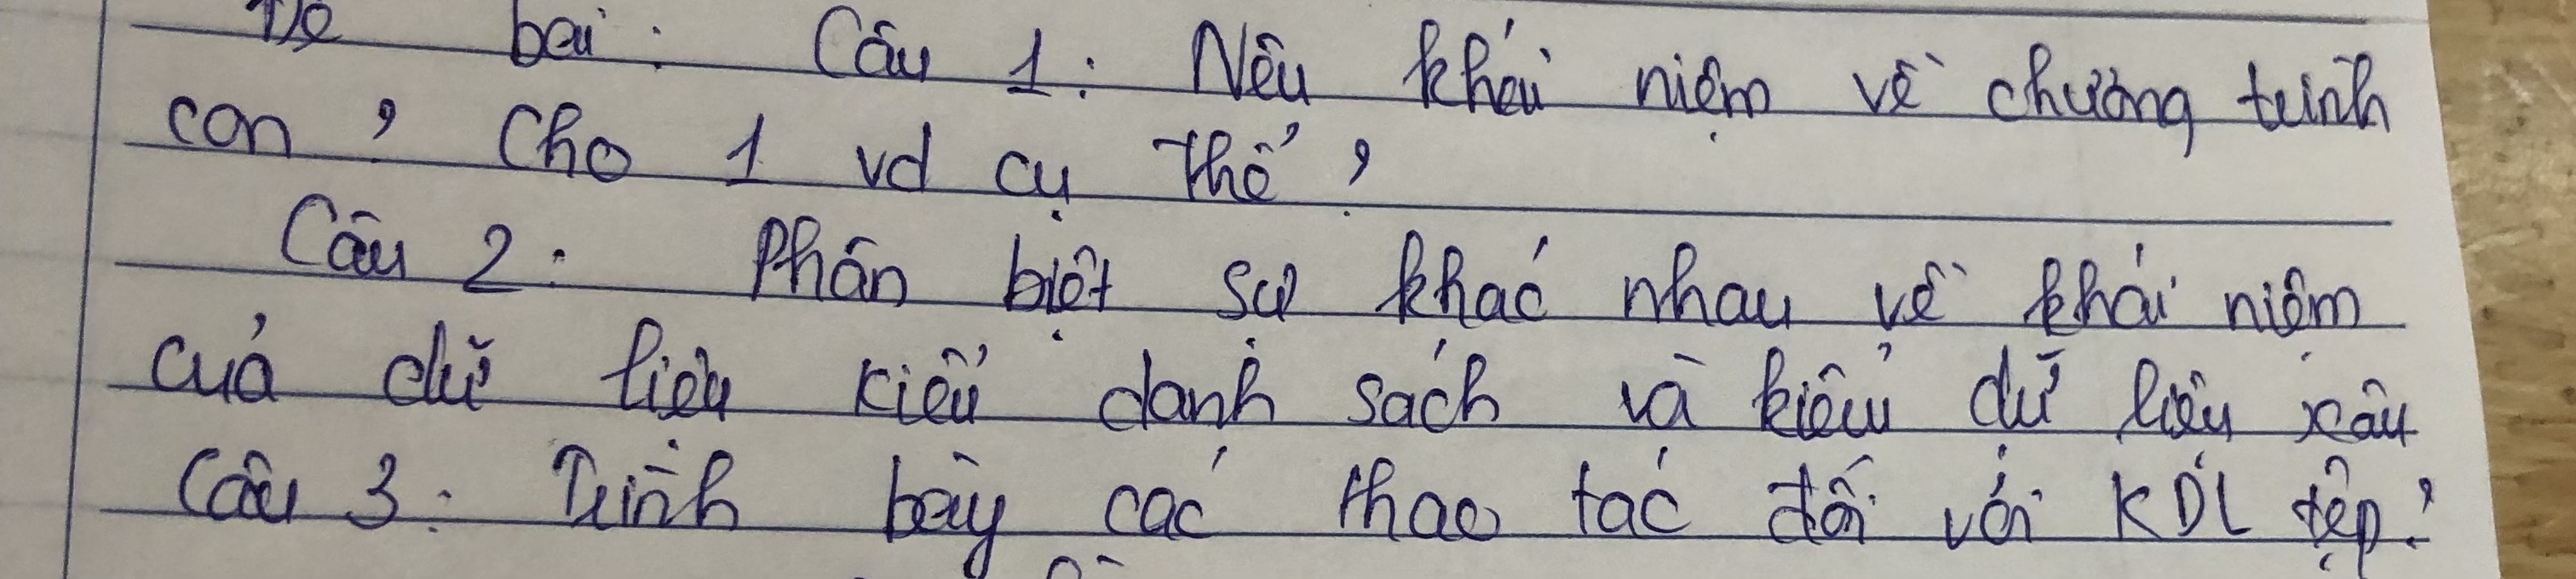 Đề bài: Câu 1: Nêu khái niệm về chương trình
con, Cho 1 vd cụ thể?
Câu 2: Phân biệt sự khác nhau về khái niệm
của dữ liệu kiểu danh sách và kiểu dữ liệu xâu
Câu 3: Trình bày các thao tác đối với KDL tệp?